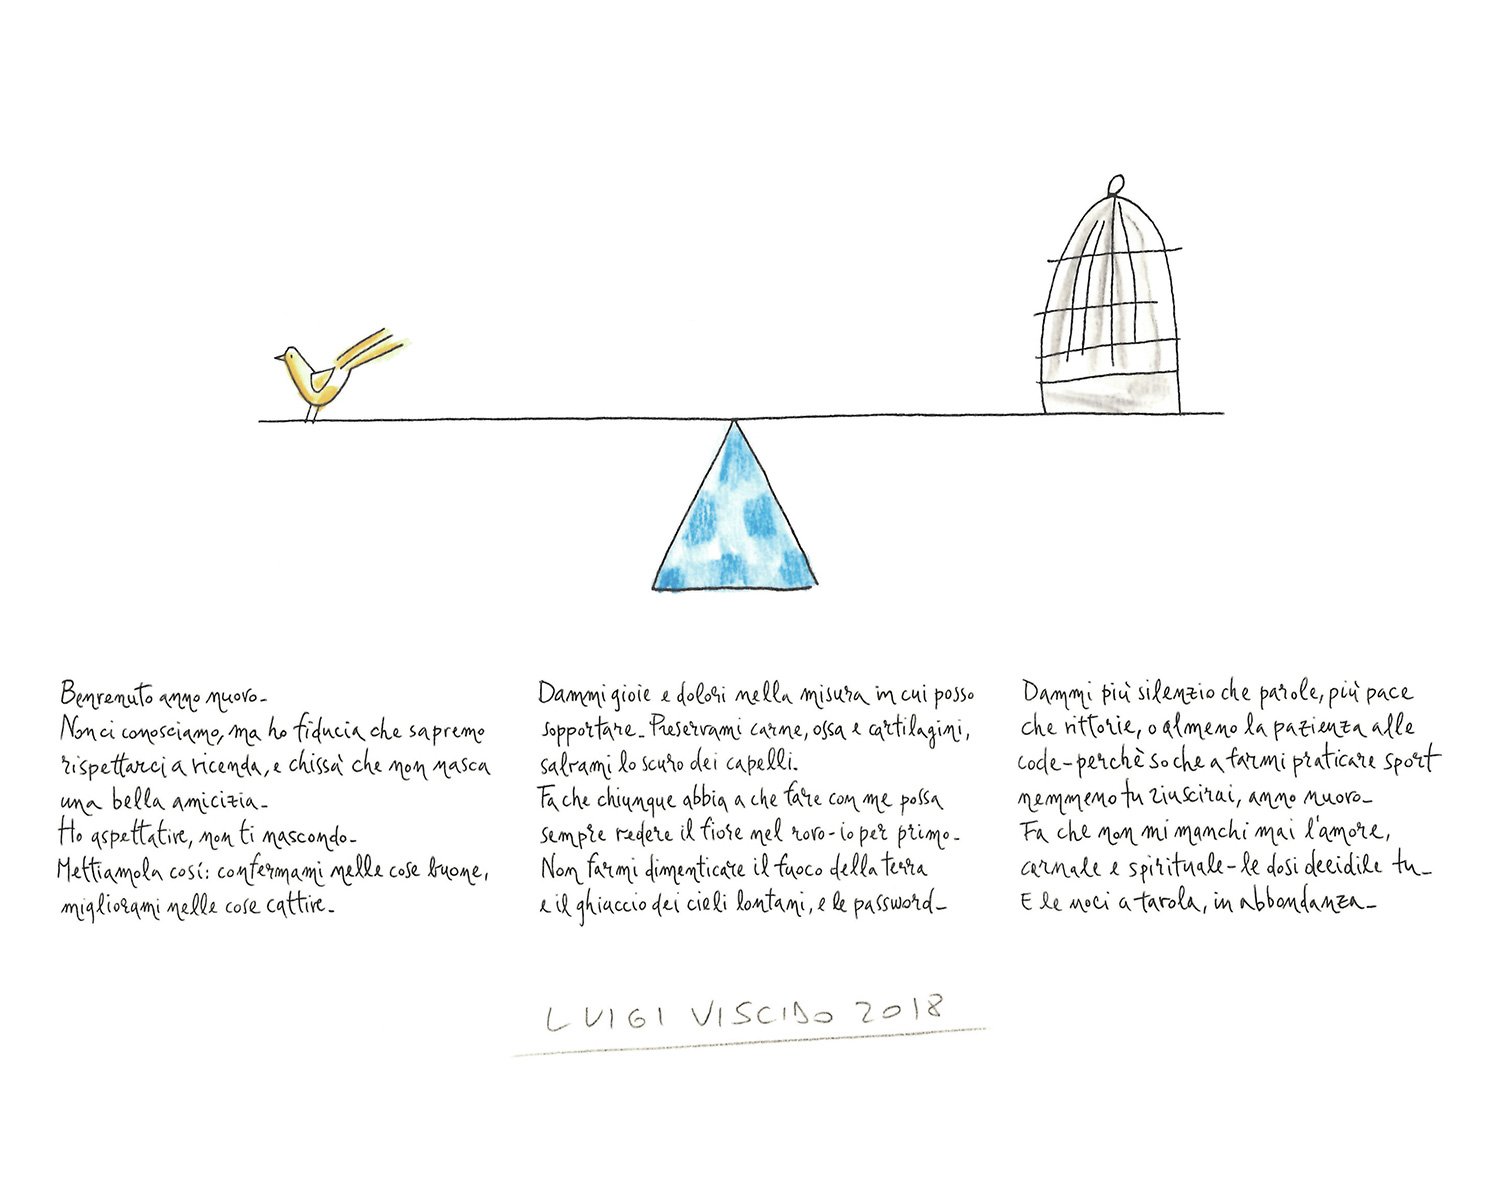 Benvenuto anno nuovo_
Non ci conosciamo, ma ho fiducia che sapremo
rispettarci a vicenda, e chissà che non nasca
una bella amicizia_
Ho aspettative, non ti nascondo_
Mettiamola cosí: confermami nelle cose buone,
migliorami nelle cose cattive_
Dammi gioie e dolori nella misura in cui posso
sopportare_ Preservami carne, ossa e cartilagini,
salvami lo scuro dei capelli.
Fa che chiunque abbia a che fare con me possa
sempre vedere il fiore nel rovo-io per primo_
Non farmi dimenticare il fuoco della terra
e il ghiaccio dei cieli lontani, e le password_
Dammi più silenzio che parole, più pace
che vittorie, o almeno la pazienza alle
code-perchè so che a farmi praticare sport
nemmeno tu riuscirai, anno nuovo_
Fa che non mi manchi mai l'amore,
carnale e spirituale-le dosi decidile tu_
E le noci a tavola, in abbondanza_
LUIGI VISCIDO 2018